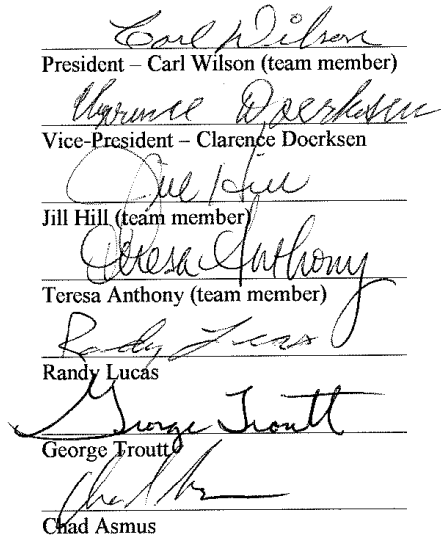 Carl Wilson
President – Carl Wilson (team member)
Clarence Doerksen
Vice-President – Clarence Doerksen
Jill Hill
Jill Hill (team member)
Teresa Anthony
Teresa Anthony (team member)
Randy Lucas
Randy Lucas
George Troutt
George Troutt
Chad Asmus